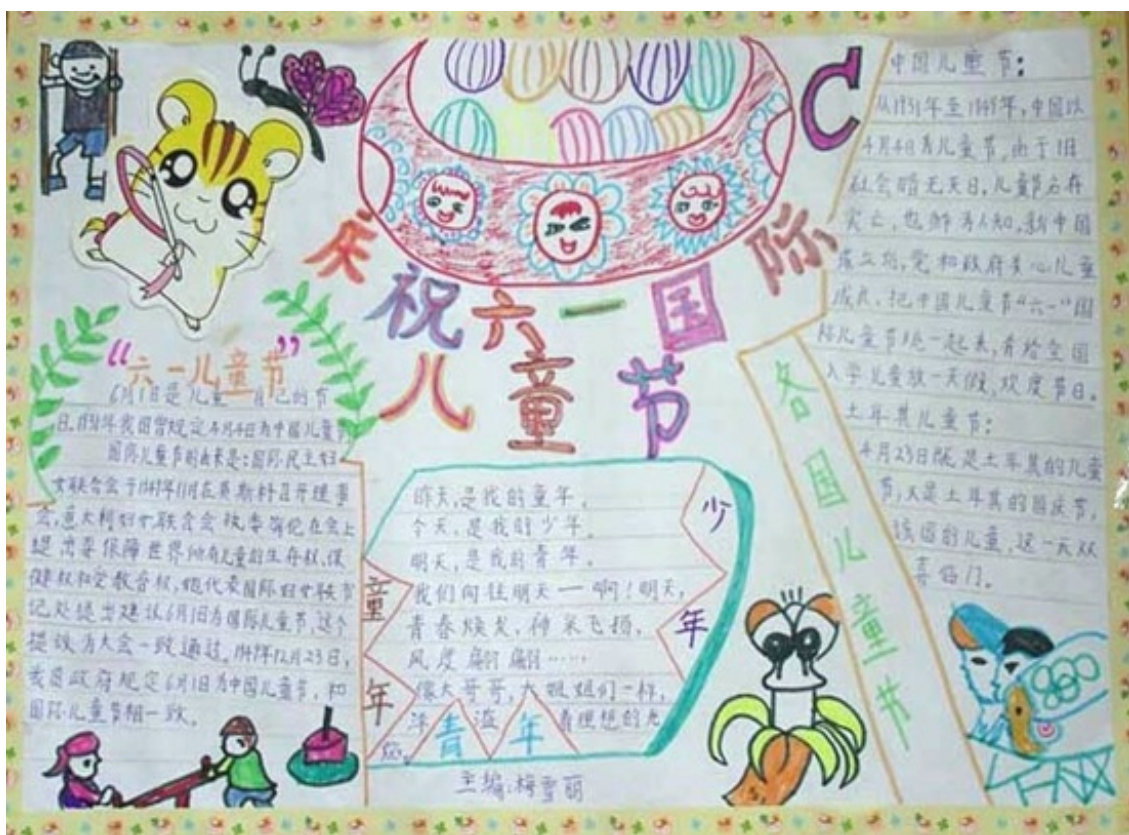 庆祝六一国际
儿童节
C
“六一儿童节”
6月1日是儿童 自己的节
日,1931年我国曾规定4月4日为中国儿童节
国际儿童节的由来是:国际民主妇
女联合会于1949年11月在莫斯科召开理事
会,意大利妇女联合会 在会上
提出要保障世界所有儿童的生存权、保
健权和受教育权,她代表国际妇女联
记处提出建议6月1日为国际儿童节,这个
提议为大会一致通过。1949年12月23日,
我国政府规定6月1日为中国儿童节,和
国际儿童节相一致。
昨天,是我的童年。
今天,是我的少年。
明天,是我的青年。
我们向往明天一啊!明天,
青春焕发,神采飞扬,
风度翩翩……
像大哥哥,大姐姐们一样,
洋溢着理想的光
童年
少年
青年
主编:梅雪丽
各国儿童节
中国儿童节:
从1931年至1949年,中国以
4月4日为儿童节,由于旧
社会暗无天日,儿童节名存
实亡,也鲜为人知,新中国
成立后,党和政府关心儿童
成长,把中国儿童节“六一”国
际儿童节统一起来,并给全国
入学儿童放一天假,欢度节日。
土耳其儿童节:
4月23日既是土耳其的儿童
节,又是土耳其的国庆节,
该国的儿童,这一天双
喜临门。